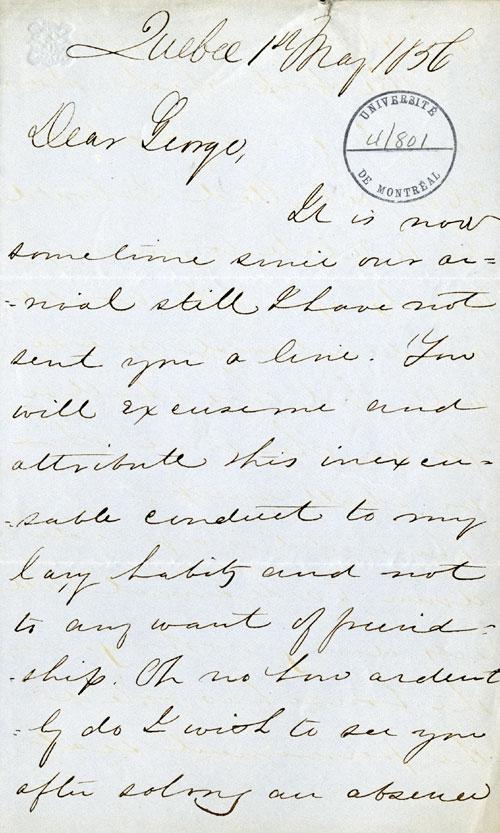 Quebec 1st May 1856
UNIVERSITÉ
U/801
DE MONTRÉAL
Dear George,
It is now
sometime since our ar=
=rival still I have not
sent you a line. You
will excuse me and
attribute this inexcu=
=sable conduct to my
lazy habits and not
to any want of friend=
=ship. Oh no how ardent
=ly do I wish to see you
after so long an absence